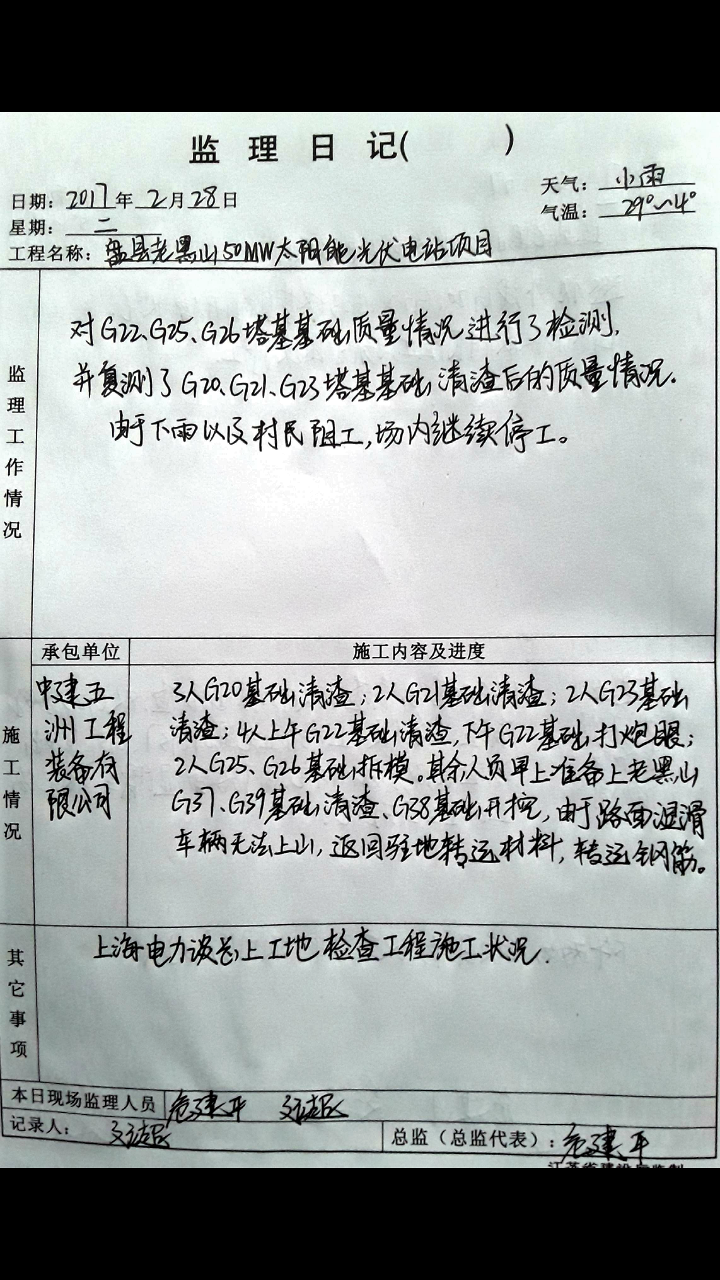 监理日记( )
日期: 2017年2月28日
天气: 小雨
星期: 二
气温: 29°~4°
工程名称: 盘县老黑山50MW太阳能光伏电站项目
监理工作情况
对G22、G25、G26塔基基础质量情况进行了检测,
并复测了G20、G21、G23塔基基础清渣后的质量情况.
由于下雨以及村民阻工,场内继续停工。
承包单位
施工内容及进度
施工情况
中建五
洲工程
装备有
限公司
3人G20基础清渣;2人G21基础清渣;2人G23基础
清渣;4人上午G22基础清渣,下午G22基础打炮眼;
2人G25、G26基础拆模。其余人员早上准备上老黑山
G37、G39基础清渣、G38基础开挖,由于路面湿滑
车辆无法上山,返回驻地转运材料,转运钢筋。
其它事项
上海电力 总上工地检查工程施工状况.
本日现场监理人员 危建平
记录人:
总监(总监代表): 危建平